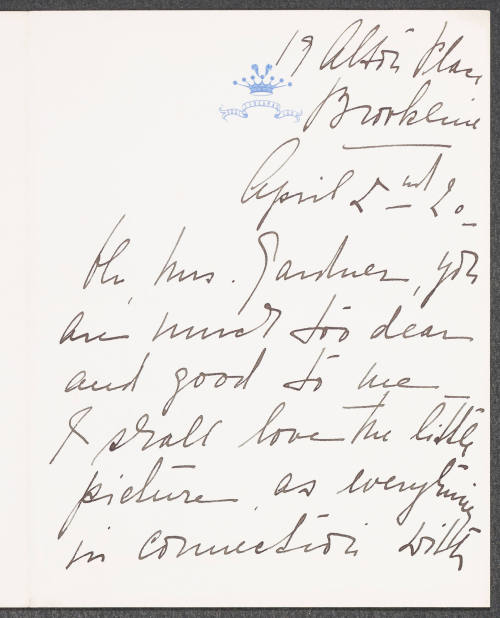 19 Alton Place
Brookline
April 2nd 20
Oh, Mrs. Gardner, you
are much too dear
and good to me
I shall love the little
picture, as everything
in connection with